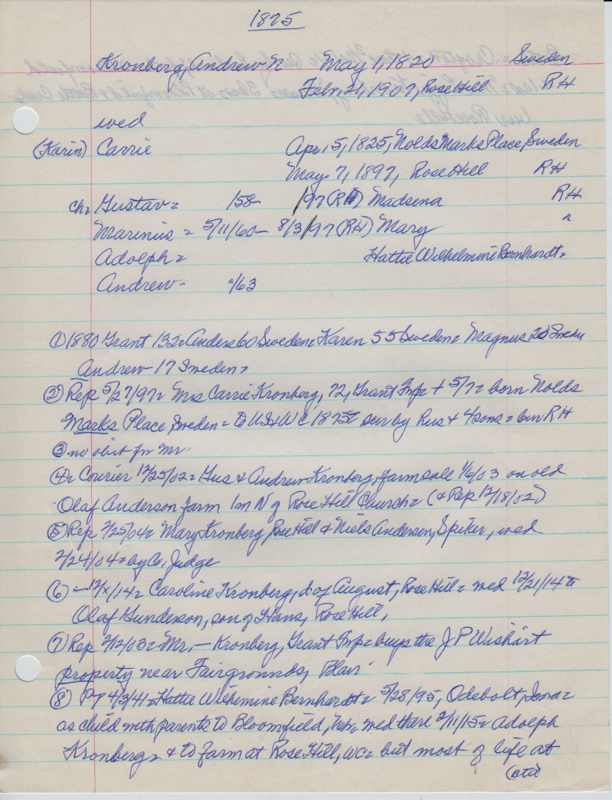 1875
Kronberg, Andrew N May 1, 1820 Sweden
Febr. 21, 1907, Rose Hill RH
wed
(Karin) Carrie Apr 5, 1825, Nolds Marks Place, Sweden
May 7, 1897, Rose Hill RH
ch = Gustav = 158- /97 (RH) Madsena RH
Marinus = 5/11/60 - 8/3/97 (RH) Mary "
Adolph = Hattie Wilhelmine Bernhardt =
Andrew - 4/63
① 1880 Grant 132 = Anders 60 Sweden = Karen 55 Sweden = Magnus 20 Sweden
Andrew 17 Sweden =
② Rep 5/27/97 = Mrs Carrie Kronberg, 72, Grant Twp + 5/7 = born Nolds
Marks Place Sweden = to US & WC 1875 = surv by hus & 4 sons = bur RH
③ no obit for Mr.
④ Courier 12/25/02 = Gus & Andrew Kronberg, farm sale 1/6/03 on old
Olaf Anderson farm 1m N of Rose Hill Church = (& Rep 12/18/02)
⑤ Rep 2/25/04 = Mary Kronberg, Rose Hill & Niels Anderson, Spiker, wed
2/24/04 = by Co. Judge
⑥ - 12/x/14 = Caroline Kronberg, d of August, Rose Hill = wed 12/21/14 to
Olaf Gunderson, son of Hans, Rose Hill,
⑦ Rep 2/12/03 = Mr. - Kronberg, Grant Twp = buys the J P Wishart
property near Fairgrounds, Blair
⑧ PT 4/3/41 = Hattie Wilhemine Bernhardt = 5/28/95, Odebolt, Iowa =
as child with parents to Bloomfield, Neb = wed there 2/11/15 = Adolph
Kronberg = & to farm at Rose Hill, WC = but most of life at
(over)